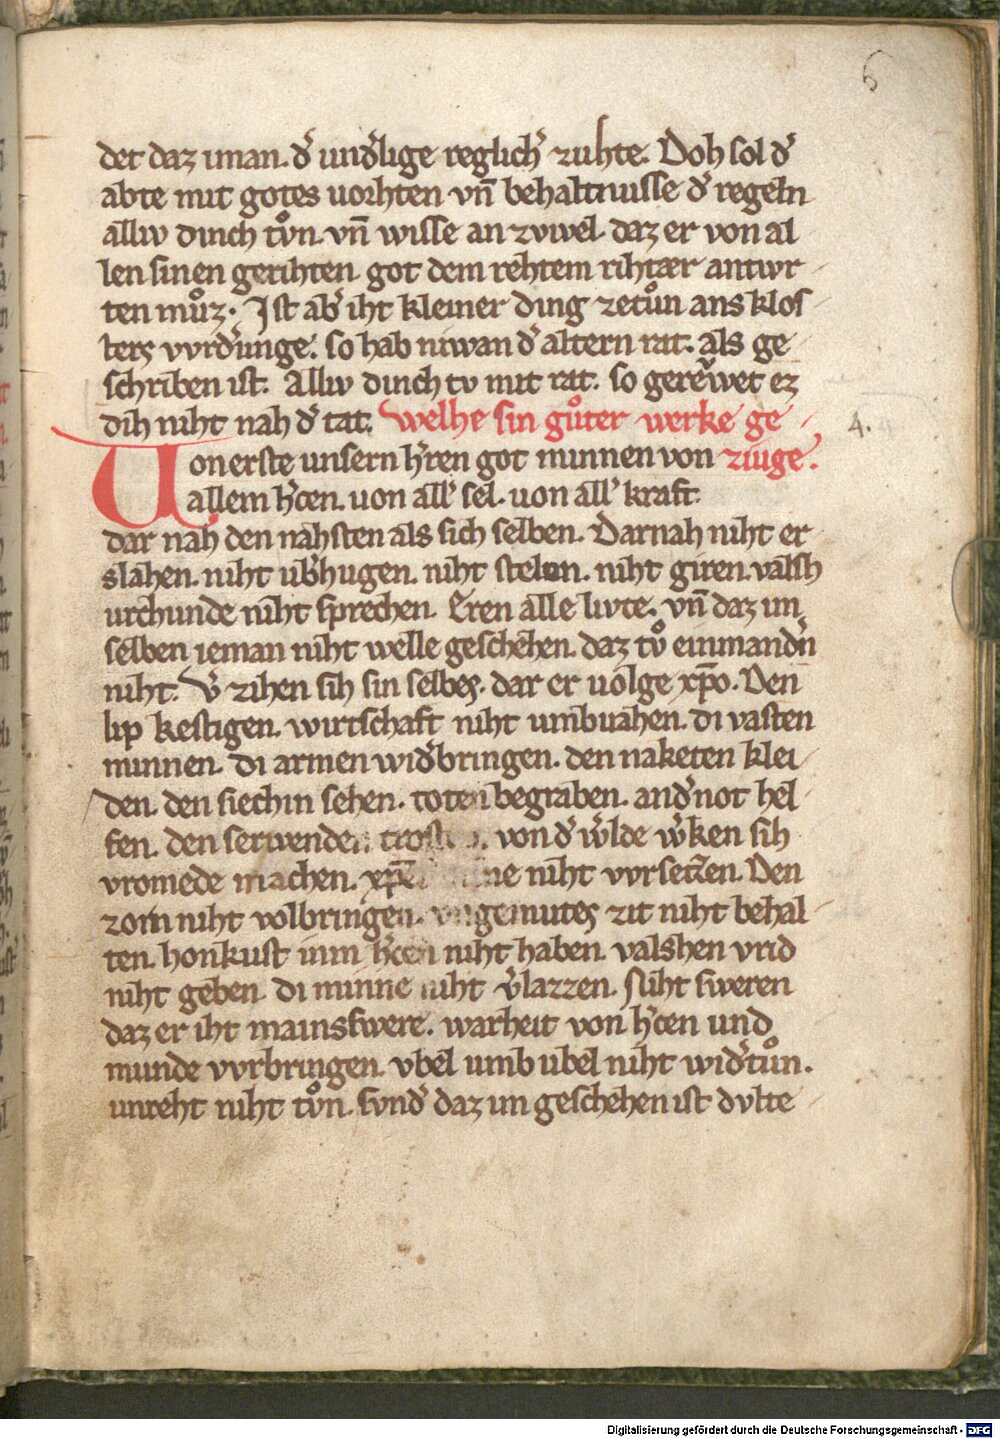 6
det daz iman. d̉ und̉lige reglich̉ zuhte. Doh sol d̉
abte mit gotes uorhten vn̄ behaltnusse d̉ regeln
alliv dinch tv̊n. vn̄ wisse an zviuel. daz er von al
len sinen gerihten. got dem rehtem rihtær antwr
ten mv̊z. Ist ab̉ iht kleiner ding zetv̊n ans klos
ters vvrd̉unge. so hab niwan d̉ altern rat. als ge
schriben ist. Alliv dinch tv mit rat. so gerewet ez
dih niht nah d̉ tat. Welhe sin gv̊ter werke ge
Uon erste unsern h̉ren got minnen von ziuge.
allem h̉cen. uon all̉ sel. uon all̉ kraft.
dar nah den nahsten als sich selben. Darnah niht er
slahen. niht ub̉hugen. niht stelen. niht giren. valsh
urchunde niht sprechen. Eren alle livte. vn̄ daz im
selben ieman niht welle geschehen. daz tv̊ einmand̉n
niht. v̉ zihen sih sin selbes. dar er uolge xp̄o. Den
lip kestigen. wirtschaft niht umbuahen. di vasten
minnen. di armen wid̉bringen. den naketen klei
den. den siechin sehen. toten begraben. and̉ not hel
fen. den serwenden von d̉ w̉lde w̉ken sih
vromede machen. niht vvrsetzen. Den
zorn niht volbringen. zit niht behal
ten. honkust inm h̉cen niht haben. valshen vrid
niht geben. di minne niht v̉lazzen. Niht sweren
daz er iht mainswere. warheit von h̉cen und
munde vvrbringen. vbel umb ubel niht wid̉tůn.
unreht niht tv̊n. svnd̉ daz im geschehen ist dvlte
4.
Digitalisierung gefördert durch die Deutsche Forschungsgemeinschaft - DFG